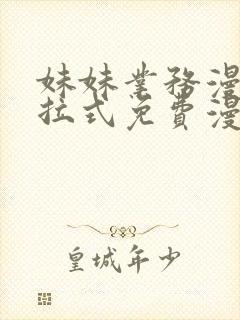 妹妹業務漫
拉式免費漫
皇城年少